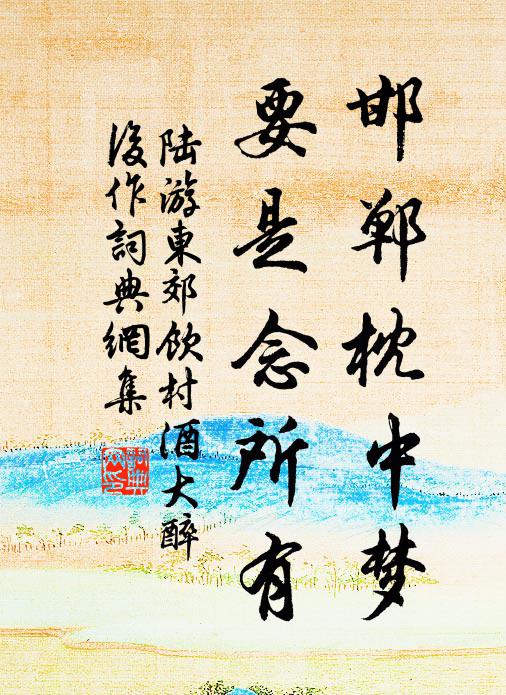 邯郸枕中梦
要是念所有
陆游東郊饮村酒大醉
後作詞典網集